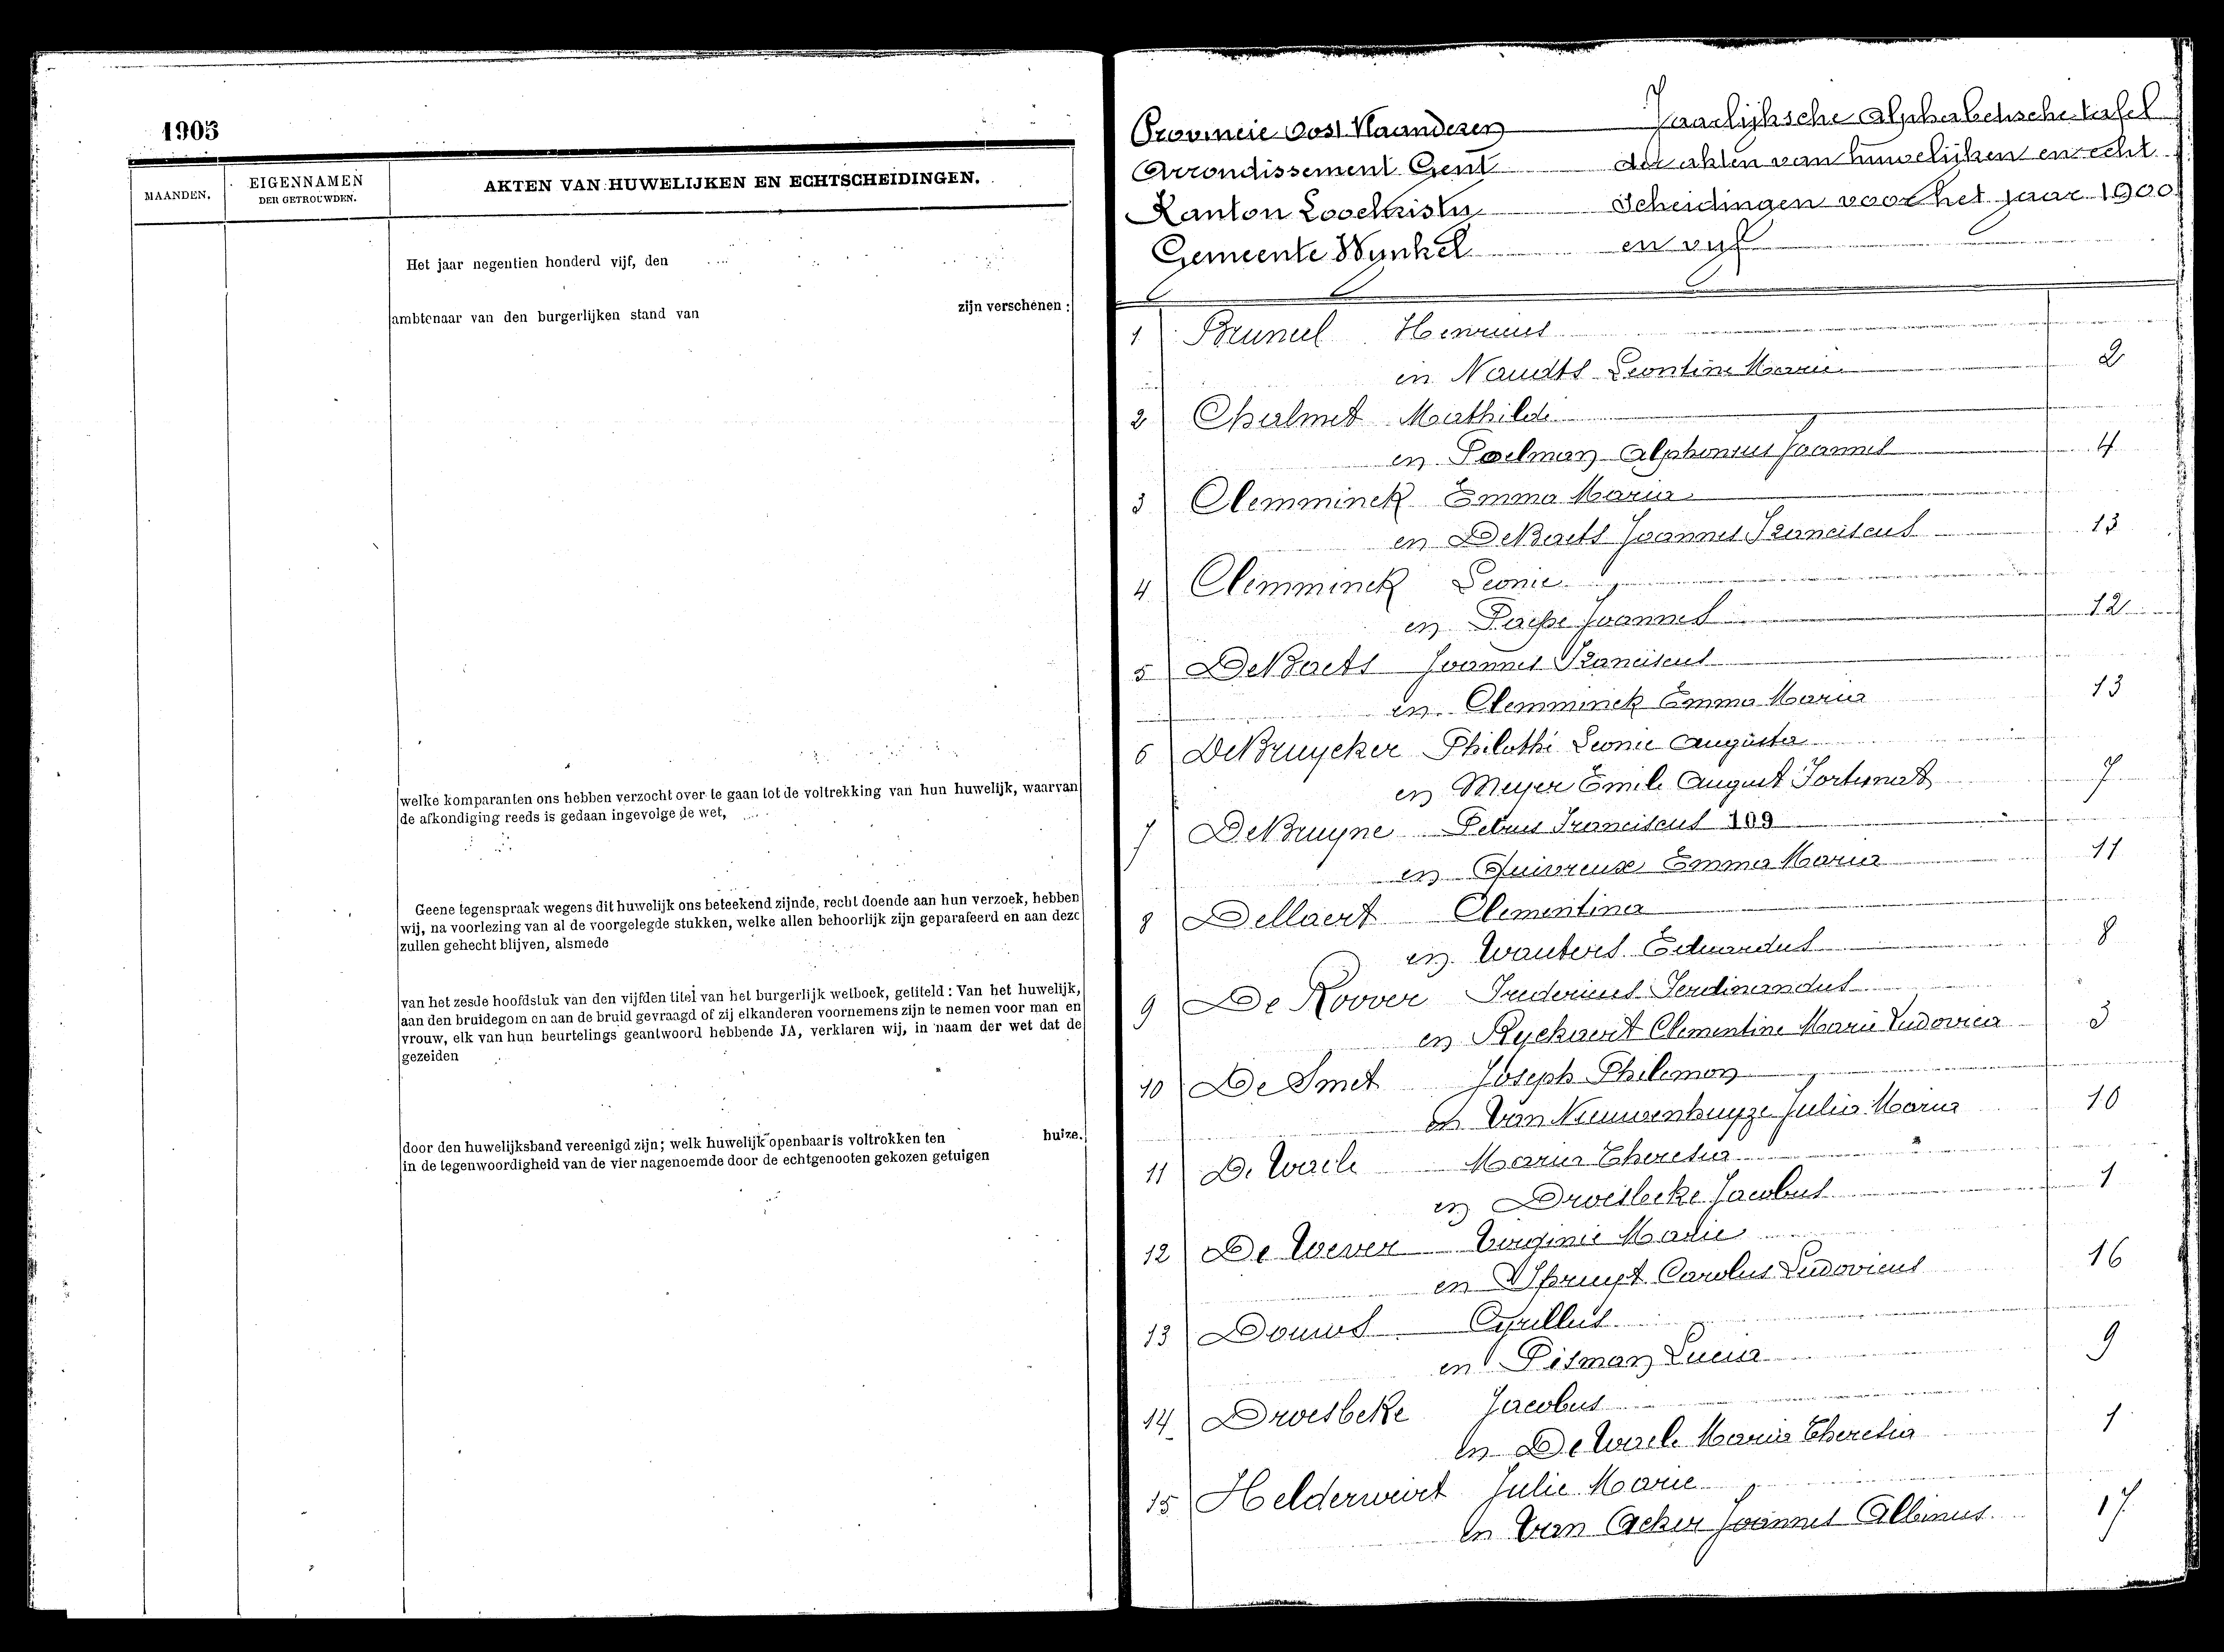 1905
MAANDEN.
EIGENNAMEN
DER GETROUWDEN.
AKTEN VAN HUWELIJKEN EN ECHTSCHEIDINGEN.
Het jaar negentien honderd vijf, den
ambtenaar van den burgerlijken stand van zijn verschenen :
welke komparanten ons hebben verzocht over te gaan tot de voltrekking van hun huwelijk, waarvan
de afkondiging reeds is gedaan ingevolge de wet,
Geene tegenspraak wegens dit huwelijk ons beteekend zijnde, recht doende aan hun verzoek, hebben
wij, na voorlezing van al de voorgelegde stukken, welke allen behoorlijk zijn geparafeerd en aan deze
zullen gehecht blijven, alsmede
van het zesde hoofdstuk van den vijfden titel van het burgerlijk wetboek, getiteld : Van het huwelijk,
aan den bruidegom en aan de bruid gevraagd of zij elkanderen voornemens zijn te nemen voor man en
vrouw, elk van hun beurtelings geantwoord hebbende JA, verklaren wij, in naam der wet dat de
gezeiden
door den huwelijksband vereenigd zijn; welk huwelijk openbaar is voltrokken ten huize.
in de tegenwoordigheid van de vier nagenoemde door de echtgenooten gekozen getuigen
Provincie Oost Vlaanderen
Arrondissement Gent
Kanton Loochristy
Gemeente Wynkel
Jaarlijksche alphabetische tafel
der akten van huwelijken en echt
scheidingen voor het jaar 1900
en vijf
1 Bruneel Henricus
en Naudts Leontine Marie 2
2 Chalmet Mathilde
en Poelman Alphonsus Joannes 4
3 Clemminck Emma Maria
en DeBaets Joannes Franciscus 13
4 Clemminck Leonie
en Paepe Joannes 12
5 DeBaets Joannes Franciscus
en Clemminck Emma Maria 13
6 DeBruycker Philothé Leonie Augusta
en Meyer Emile August Fortunat 7
7 DeBruyne Petrus Franciscus 109
en Quivreux Emma Maria 11
8 Dellaert Clementina
en Wauters Eduardus 8
9 De Roover Fredericus Ferdinandus
en Ryckaert Clementine Marie Ludovica 3
10 De Smet Joseph Philemon
en Van Nieuwenhuyze Julia Maria 10
11 De Waele Maria Theresia
en Droesbeke Jacobus 1
12 De Wever Virginie Marie
en Spruyt Carolus Ludovicus 16
13 Douws Cyrillus
en Pisman Lucia 9
14 Droesbeke Jacobus
en De Waele Maria Theresia 1
15 Helderweirt Julie Marie
en Van Acker Joannes Albinus 17